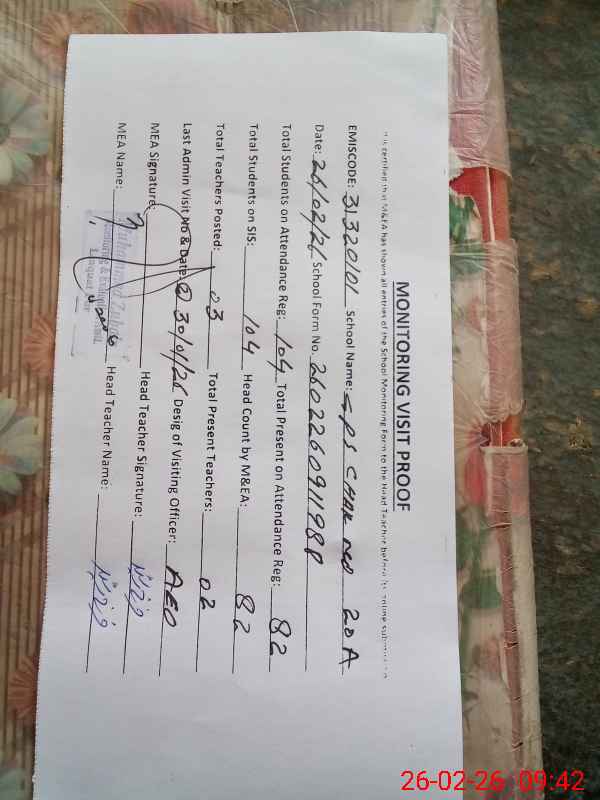 MONITORING VISIT PROOF
It is certified that M&EA has shown all entries of the School Monitoring Form to the Head Teacher before its online submission
EMISCODE: 31320101 School Name: GPS CHAK NO 20 A
Date: 26/02/26 School Form No. 260226091198P
Total Students on Attendance Reg: 104 Total Present on Attendance Reg: 82
Total Students on SIS: 104 Head Count by M&EA: 82
Total Teachers Posted: 03 Total Present Teachers: 02
Last Admin Visit No & Date: 2 30/01/26 Desig of Visiting Officer: AEO
MEA Signature: Head Teacher Signature:
MEA Name: Head Teacher Name:
Muhammad
26-02-26 09:42